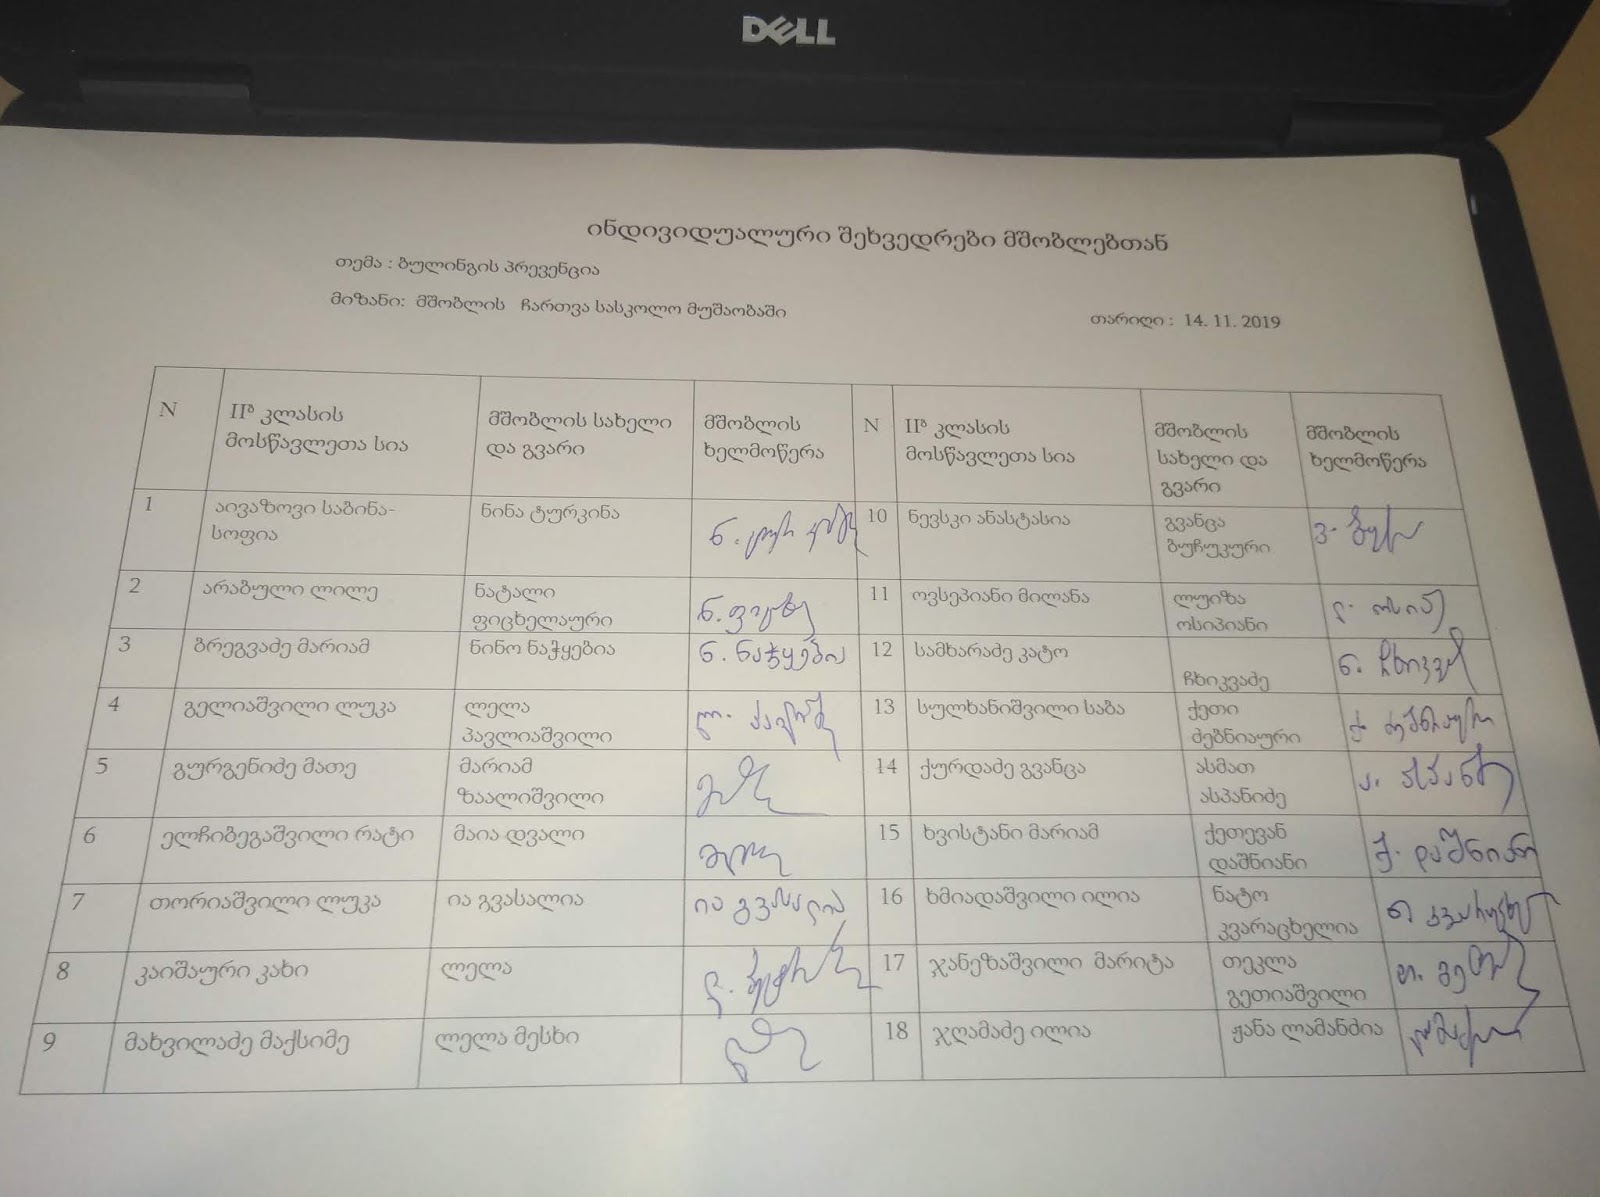 DELL
ინდივიდუალური შეხვედრები მშობლებთან
თემა : ბულინგის პრევენცია
მიზანი: მშობლის ჩართვა სასკოლო მუშაობაში
თარიღი : 14. 11. 2019
N
IIᵇ კლასის
მოსწავლეთა სია
მშობლის სახელი
და გვარი
მშობლის
ხელმოწერა
N
IIᵇ კლასის
მოსწავლეთა სია
მშობლის
სახელი და
გვარი
მშობლის
ხელმოწერა
1
აივაზოვი საბინა-
სოფია
ნინა ტურკინა
10
ნევსკი ანასტასია
გვანცა
ბუჩუკური
2
არაბული ლილე
ნატალი
ფიცხელაური
11
ოვსეპიანი მილანა
ლუიზა
ოსიპიანი
3
ბრეგვაძე მარიამ
ნინო ნაჭყებია
ნ. ნაჭყებია
12
სამხარაძე კატო
ჩხიკვაძე
4
გელიაშვილი ლუკა
ლელა
პავლიაშვილი
13
სულხანიშვილი საბა
ქეთი
ძებნიაური
5
გურგენიძე მათე
მარიამ
ზაალიშვილი
14
ქურდაძე გვანცა
ასმათ
ასპანიძე
6
ელჩიბეგაშვილი რატი
მაია დვალი
15
ხვისტანი მარიამ
ქეთევან
დაშნიანი
ქ. დაშნიანი
7
თორიაშვილი ლუკა
ია გვასალია
ია გვასალია
16
ხმიადაშვილი ილია
ნატო
კვარაცხელია
8
კაიშაური კახი
ლელა
17
ჯანეზაშვილი მარიტა
თეკლა
გეთიაშვილი
9
მახვილაძე მაქსიმე
ლელა მესხი
18
ჯღამაძე ილია
ჟანა ლამანძია